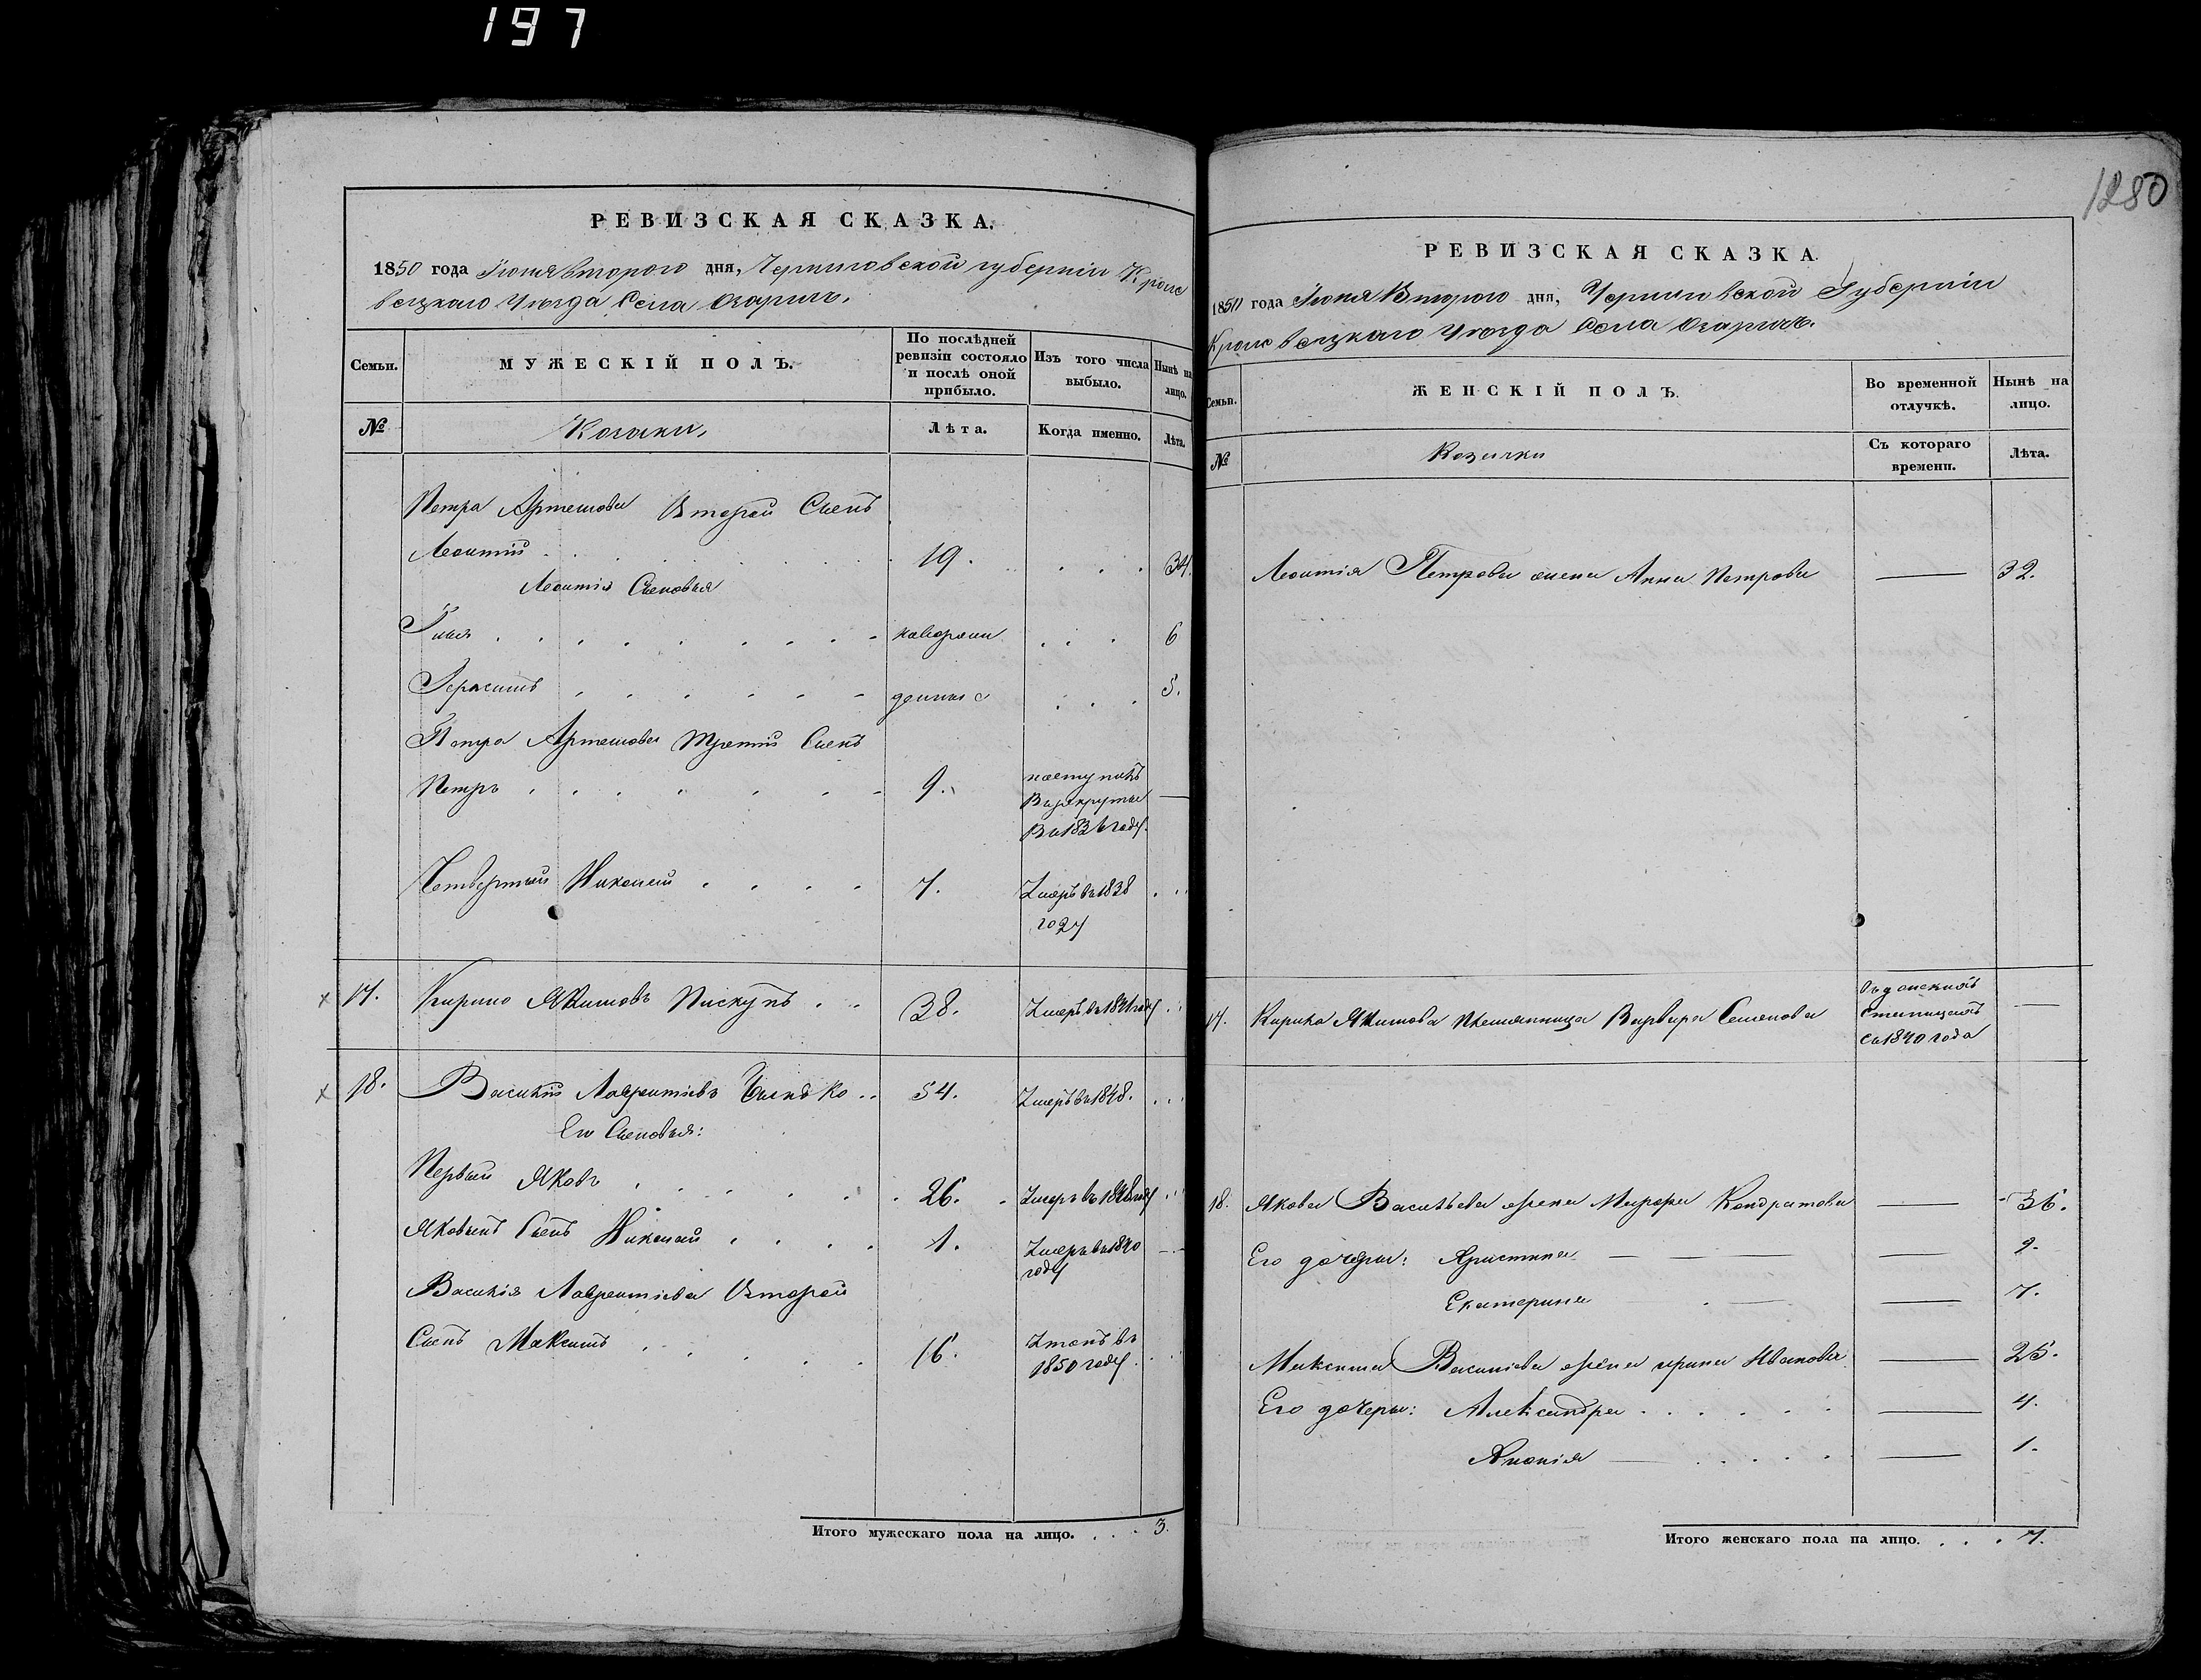 197
1280
РЕВИЗСКАЯ СКАЗКА.
1850 года Іюня второго дня, Черниговской губерніи Кроле
вецкаго Уѣзда Села Озаричъ.
Семьи.
МУЖЕСКІЙ ПОЛЪ.
По послѣдней ревизіи состояло и послѣ оной прибыло.
Изъ того числа выбыло.
Нынѣ на лицо.
№
Козаки,
Лѣта.
Когда именно.
Лѣта.
Петра Артемова Второй Сынъ
Леонтій 19. 34.
Леонтія Сыновья
Илья 6
Герасимъ 5.
Петра Артемова Третій Сынъ
Петръ 9. поступилъ
В рекруты
Въ 1836 году.
Четвертый Николай 7. Умеръ въ 1838
году
17. Кирило Якимовъ Пискунъ 38. Умеръ въ 1841 году
18. Василій Лаврентіевъ 54. Умеръ въ 1848.
Его Сыновья:
Первый Яковъ 26. Умеръ въ 1848 году
Яковынъ Сынъ Николай 1. Умеръ въ 1840
году
Василія Лаврентіева Второй
Сынъ Максимъ 16. въ
1850 году.
Итого мужескаго пола на лицо. 3.
РЕВИЗСКАЯ СКАЗКА.
1850 года Іюня Второго дня, Черниговской Губерніи
Кролевецкаго Уѣзда Села Озаричъ.
Семьи.
ЖЕНСКІЙ ПОЛЪ.
Во временной отлучкѣ.
Нынѣ на лицо.
№
Козачки
Съ котораго времени.
Лѣта.
Леонтія Петрова жена Анна Петрова — 32.
17. Кирила Якимова племянница Варвара Семенова
Станицахъ
Съ 1840 года —
18. Якова Васильева жена Марфа Кондратова — 36.
Его дочеры: Христина — 9.
Екатерина — 7.
Максима Васильева жена Ирина Иванова — 25.
Его дочеры: Александра — 4.
— 1.
Итого женскаго пола на лицо. 7.